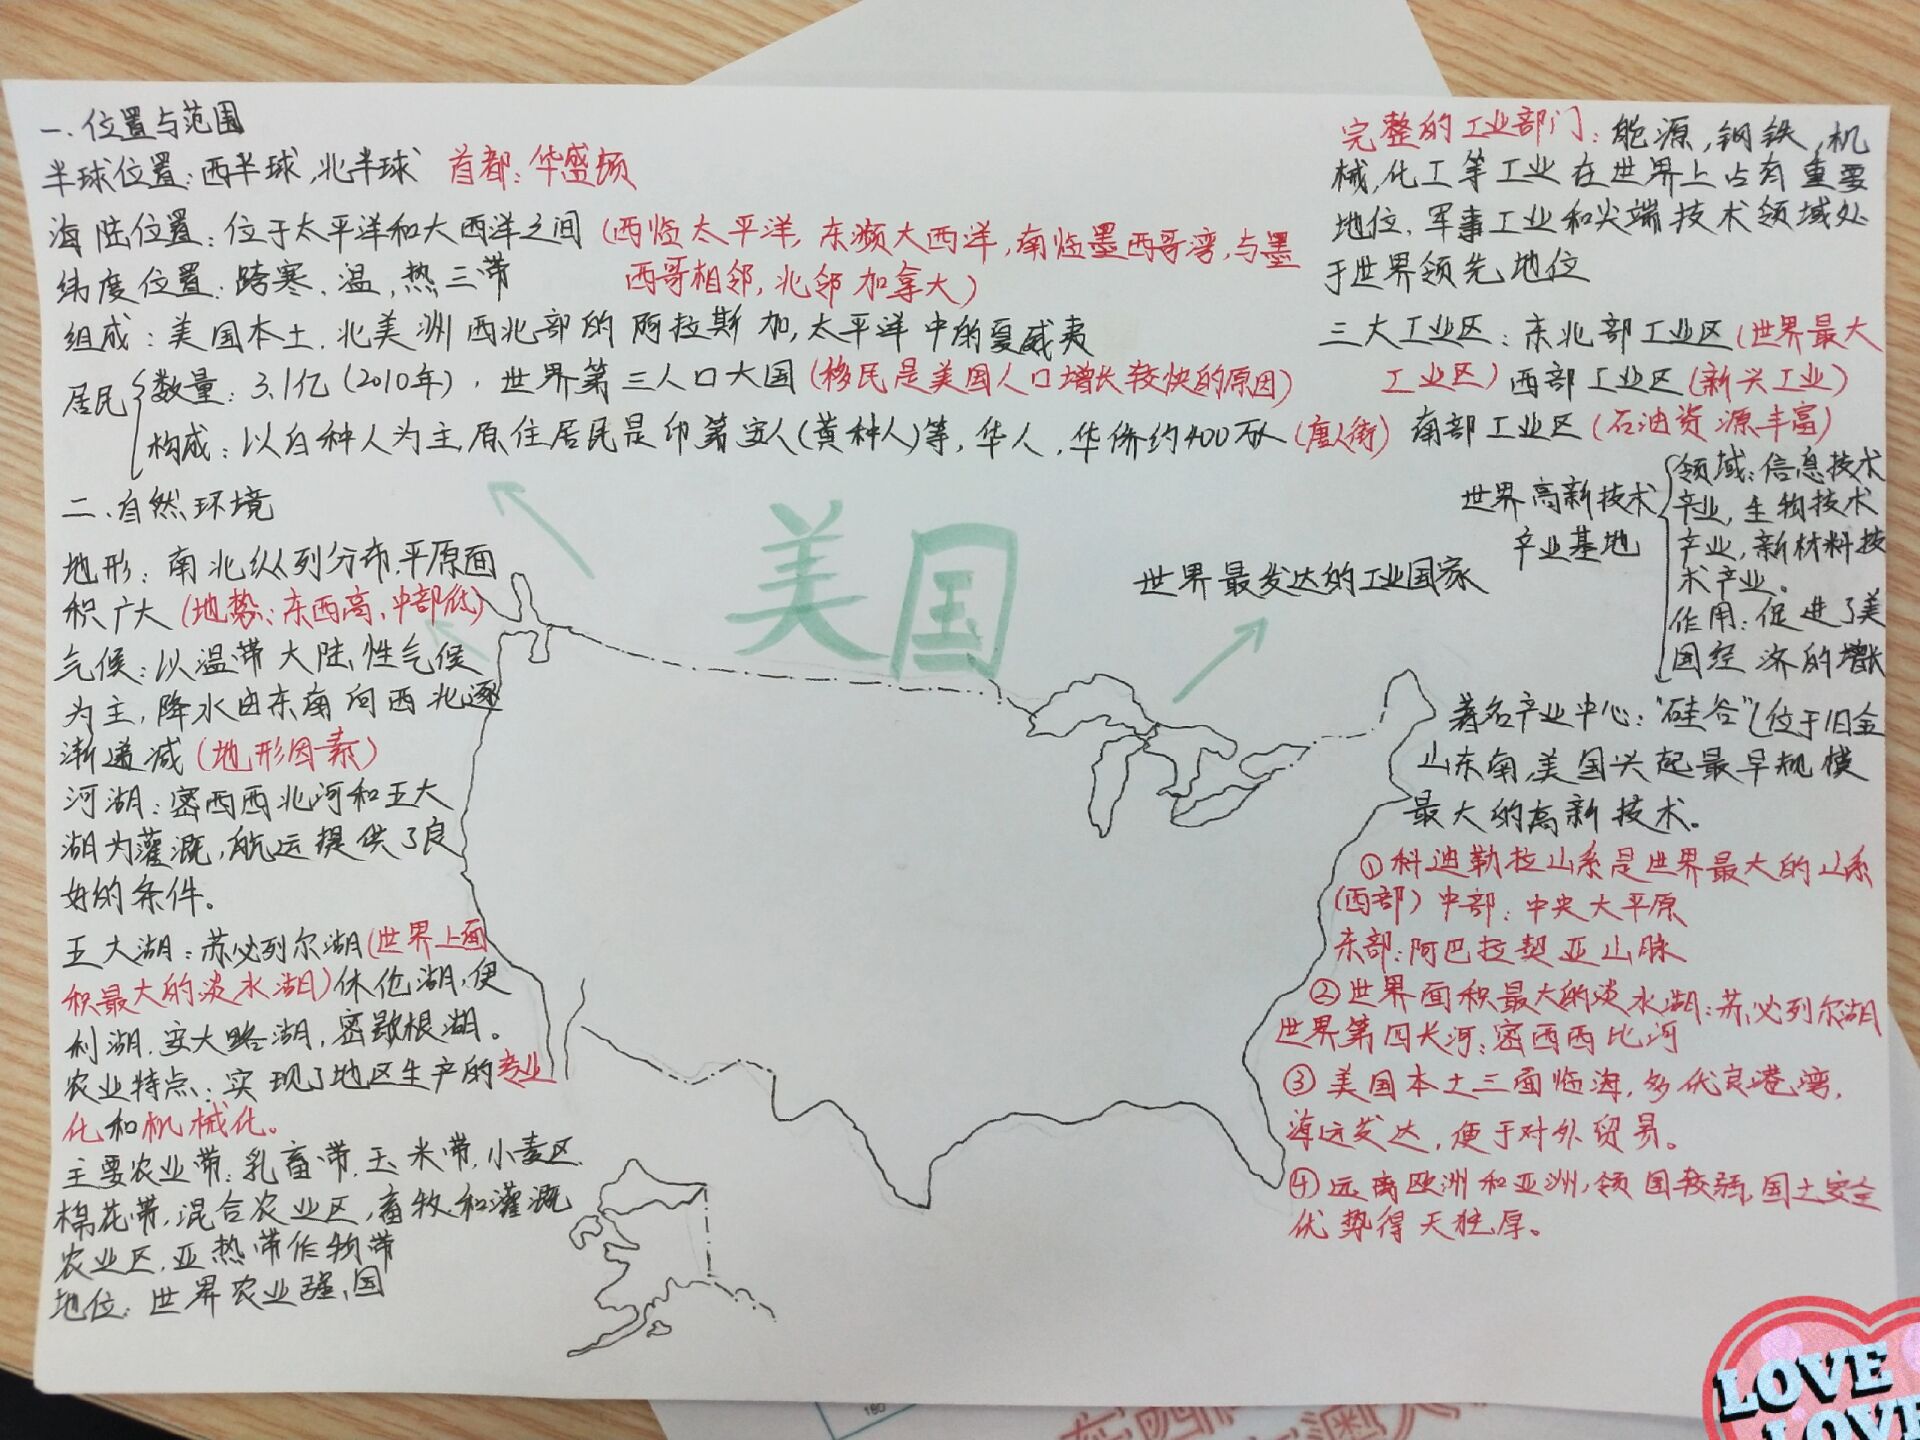 一.位置与范围
半球位置:西半球,北半球 首都:华盛顿
海陆位置:位于太平洋和大西洋之间(西临太平洋,东濒大西洋,南临墨西哥湾,与墨
西哥相邻,北邻加拿大)
纬度位置:跨寒、温,热三带
组成:美国本土、北美洲西北部的阿拉斯加,太平洋中的夏威夷
居民
数量:3.1亿(2010年),世界第三人口大国(移民是美国人口增长较快的原因)
构成:以白种人为主,原住居民是印第安人(黄种人)等,华人、华侨约400万人(唐人街)
二.自然环境
地形:南北纵列分布,平原面
积广大(地势:东西高,中部低)
气候:以温带大陆性气候
为主,降水由东南向西北逐
渐递减(地形因素)
河湖:密西西北河和五大
湖为灌溉,航运提供了良
好的条件。
五大湖:苏必列尔湖(世界上面
积最大的淡水湖)休伦湖,伊
利湖.安大略湖,密歇根湖。
农业特点:实现了地区生产的专业
化和机械化。
主要农业带:乳畜带.玉米带.小麦区.
棉花带,混合农业区,畜牧和灌溉
农业区,亚热带作物带
地位:世界农业强国
美国
完整的工业部门:能源,钢铁,机
械,化工等工业在世界上占有重要
地位,军事工业和尖端技术领域处
于世界领先地位
三大工业区:东北部工业区(世界最大
工业区)西部工业区(新兴工业)
南部工业区(石油资源丰富)
世界高新技术
产业基地
领域:信息技术
产业,生物技术
产业,新材料技
术产业。
作用:促进了美
国经济的增长
世界最发达的工业国家
著名产业中心:"硅谷"(位于旧金
山东南,美国兴起最早规模
最大的高新技术。
①科迪勒拉山系是世界最大的山系
(西部)中部:中央大平原
东部:阿巴拉契亚山脉
②世界面积最大的淡水湖:苏必列尔湖
世界第四长河:密西西比河
③美国本土三面临海,多优良港湾,
海运发达,便于对外贸易。
④远离欧洲和亚洲,领国较弱,国土安全
优势得天独厚。
LOVE
LOVE
180